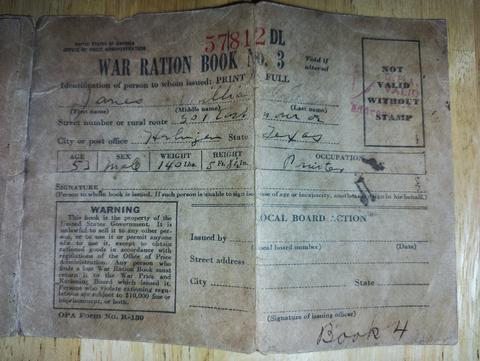 UNITED STATES OF AMERICA
OFFICE OF PRICE ADMINISTRATION
57812 DL
WAR RATION BOOK NO. 3
Void if altered
NOT VALID WITHOUT STAMP
Identification of person to whom issued: PRINT IN FULL
James
(First name) (Middle name) (Last name)
Street number or rural route 501 East
City or post office Harlingen State Texas
AGE SEX WEIGHT HEIGHT OCCUPATION
53 male 140 Lbs. 5 Ft. 8 In. Printer
SIGNATURE
(Person to whom book is issued. If such person is unable to sign because of age or incapacity, another may sign in his behalf.)
WARNING
This book is the property of the
United States Government. It is
unlawful to sell it to any other per-
son, or to use it or permit anyone
else to use it, except to obtain
rationed goods in accordance with
regulations of the Office of Price
Administration. Any person who
finds a lost War Ration Book must
return it to the War Price and
Rationing Board which issued it.
Persons who violate rationing regu-
lations are subject to $10,000 fine or
imprisonment, or both.
OPA Form No. R-130
LOCAL BOARD ACTION
Issued by
(Local board number) (Date)
Street address
City State
(Signature of issuing officer)
Book 4